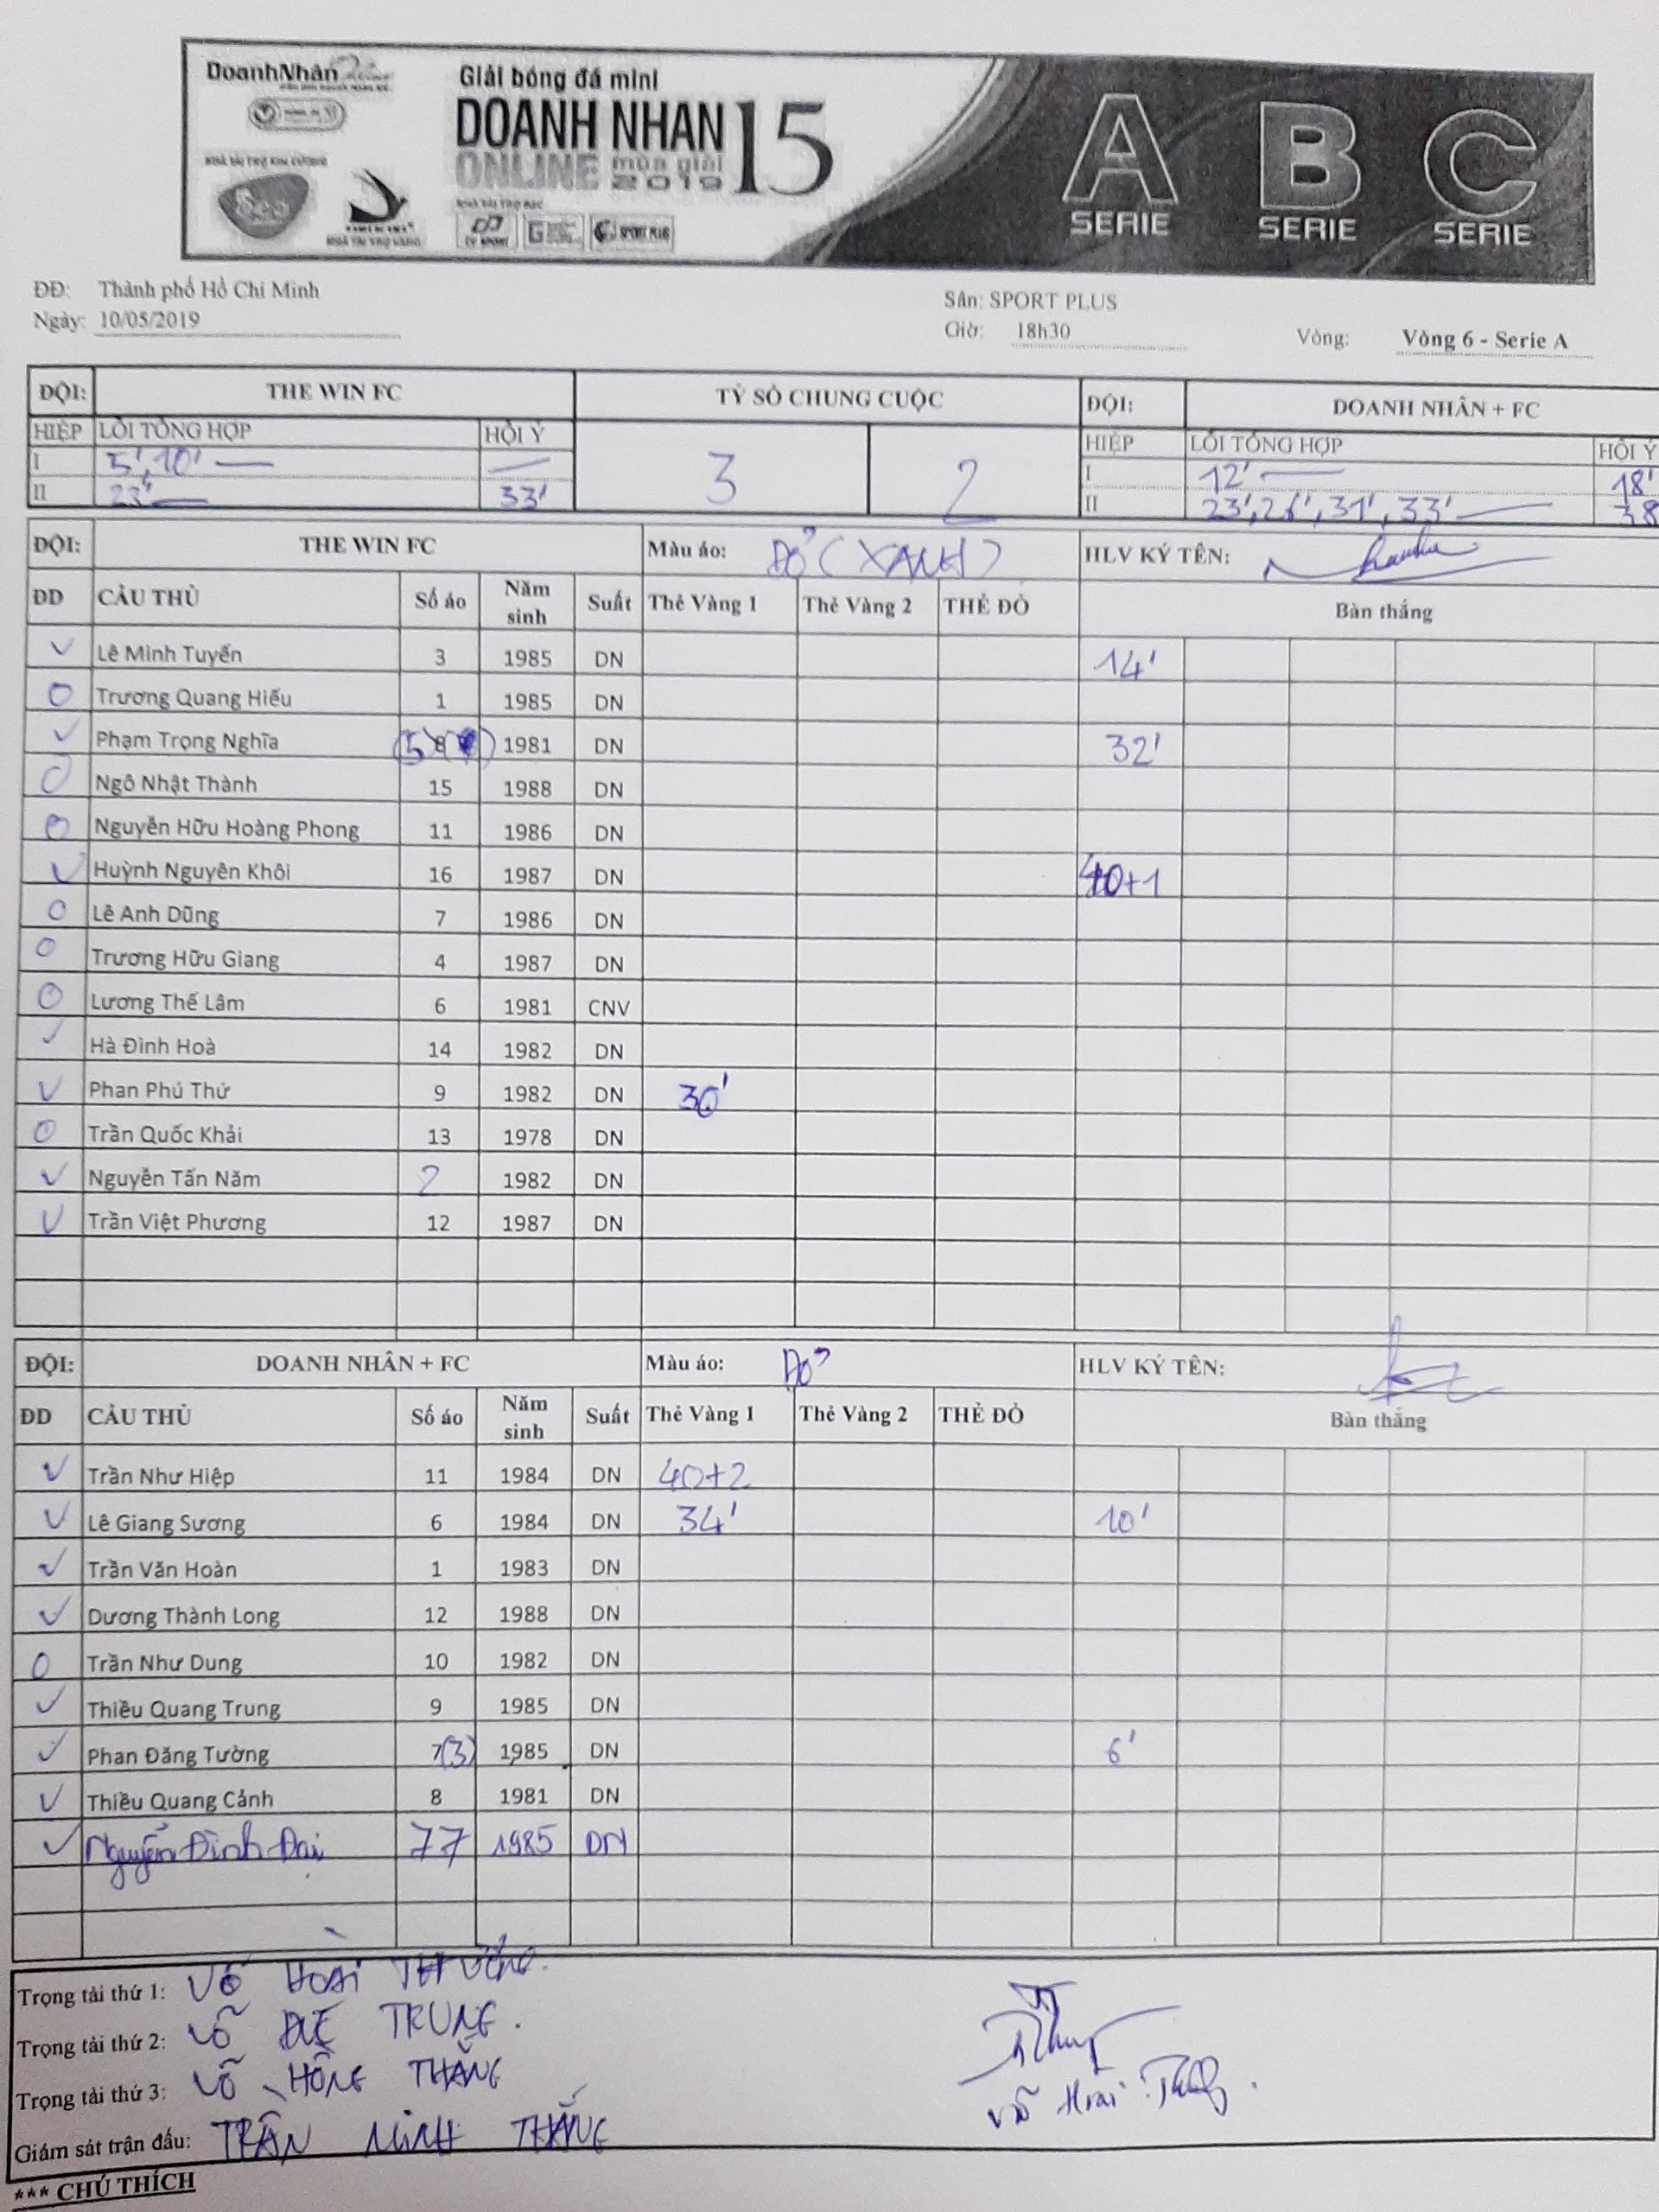 DoanhNhân
Giải bóng đá mini
DOANH NHAN 15
ONLINE mùa giải 2019
NHÀ TÀI TRỢ KIM CƯƠNG
NHÀ TÀI TRỢ VÀNG
NHÀ TÀI TRỢ BẠC
SPORT PLUS
A SERIE B SERIE C SERIE
ĐĐ: Thành phố Hồ Chí Minh Sân: SPORT PLUS
Ngày: 10/05/2019 Giờ: 18h30 Vòng: Vòng 6 - Serie A
ĐỘI: THE WIN FC TỶ SỐ CHUNG CUỘC ĐỘI: DOANH NHÂN + FC
HIỆP LỖI TỔNG HỢP HỘI Ý 3 2 HIỆP LỖI TỔNG HỢP HỘI Ý
I 5', 10' — — I 12' — 18'
II 23' — 33' II 23', 26', 31', 33' — 38
ĐỘI: THE WIN FC Màu áo: ĐỎ (XANH) HLV KÝ TÊN:
ĐD CẦU THỦ Số áo Năm sinh Suất Thẻ Vàng 1 Thẻ Vàng 2 THẺ ĐỎ Bàn thắng
Lê Minh Tuyến 3 1985 DN 14'
Trương Quang Hiếu 1 1985 DN
Phạm Trọng Nghĩa (5) 8 1981 DN 32'
Ngô Nhật Thành 15 1988 DN
Nguyễn Hữu Hoàng Phong 11 1986 DN
Huỳnh Nguyên Khôi 16 1987 DN 40+1
Lê Anh Dũng 7 1986 DN
Trương Hữu Giang 4 1987 DN
Lương Thế Lâm 6 1981 CNV
Hà Đình Hoà 14 1982 DN
Phan Phú Thứ 9 1982 DN 30'
Trần Quốc Khải 13 1978 DN
Nguyễn Tấn Năm 2 1982 DN
Trần Việt Phương 12 1987 DN
ĐỘI: DOANH NHÂN + FC Màu áo: ĐỎ HLV KÝ TÊN:
ĐD CẦU THỦ Số áo Năm sinh Suất Thẻ Vàng 1 Thẻ Vàng 2 THẺ ĐỎ Bàn thắng
Trần Như Hiệp 11 1984 DN 40+2
Lê Giang Sương 6 1984 DN 34' 10'
Trần Văn Hoàn 1 1983 DN
Dương Thành Long 12 1988 DN
Trần Như Dung 10 1982 DN
Thiều Quang Trung 9 1985 DN
Phan Đăng Tường 7(3) 1985 DN 6'
Thiều Quang Cảnh 8 1981 DN
Nguyễn Đình Đại 77 1985 DN
Trọng tài thứ 1: VÕ HOÀI THƯƠNG.
Trọng tài thứ 2: VÕ ĐỨC TRUNG.
Trọng tài thứ 3: VÕ HỒNG THẮNG
Giám sát trận đấu: TRẦN MINH THẮNG
*** CHÚ THÍCH